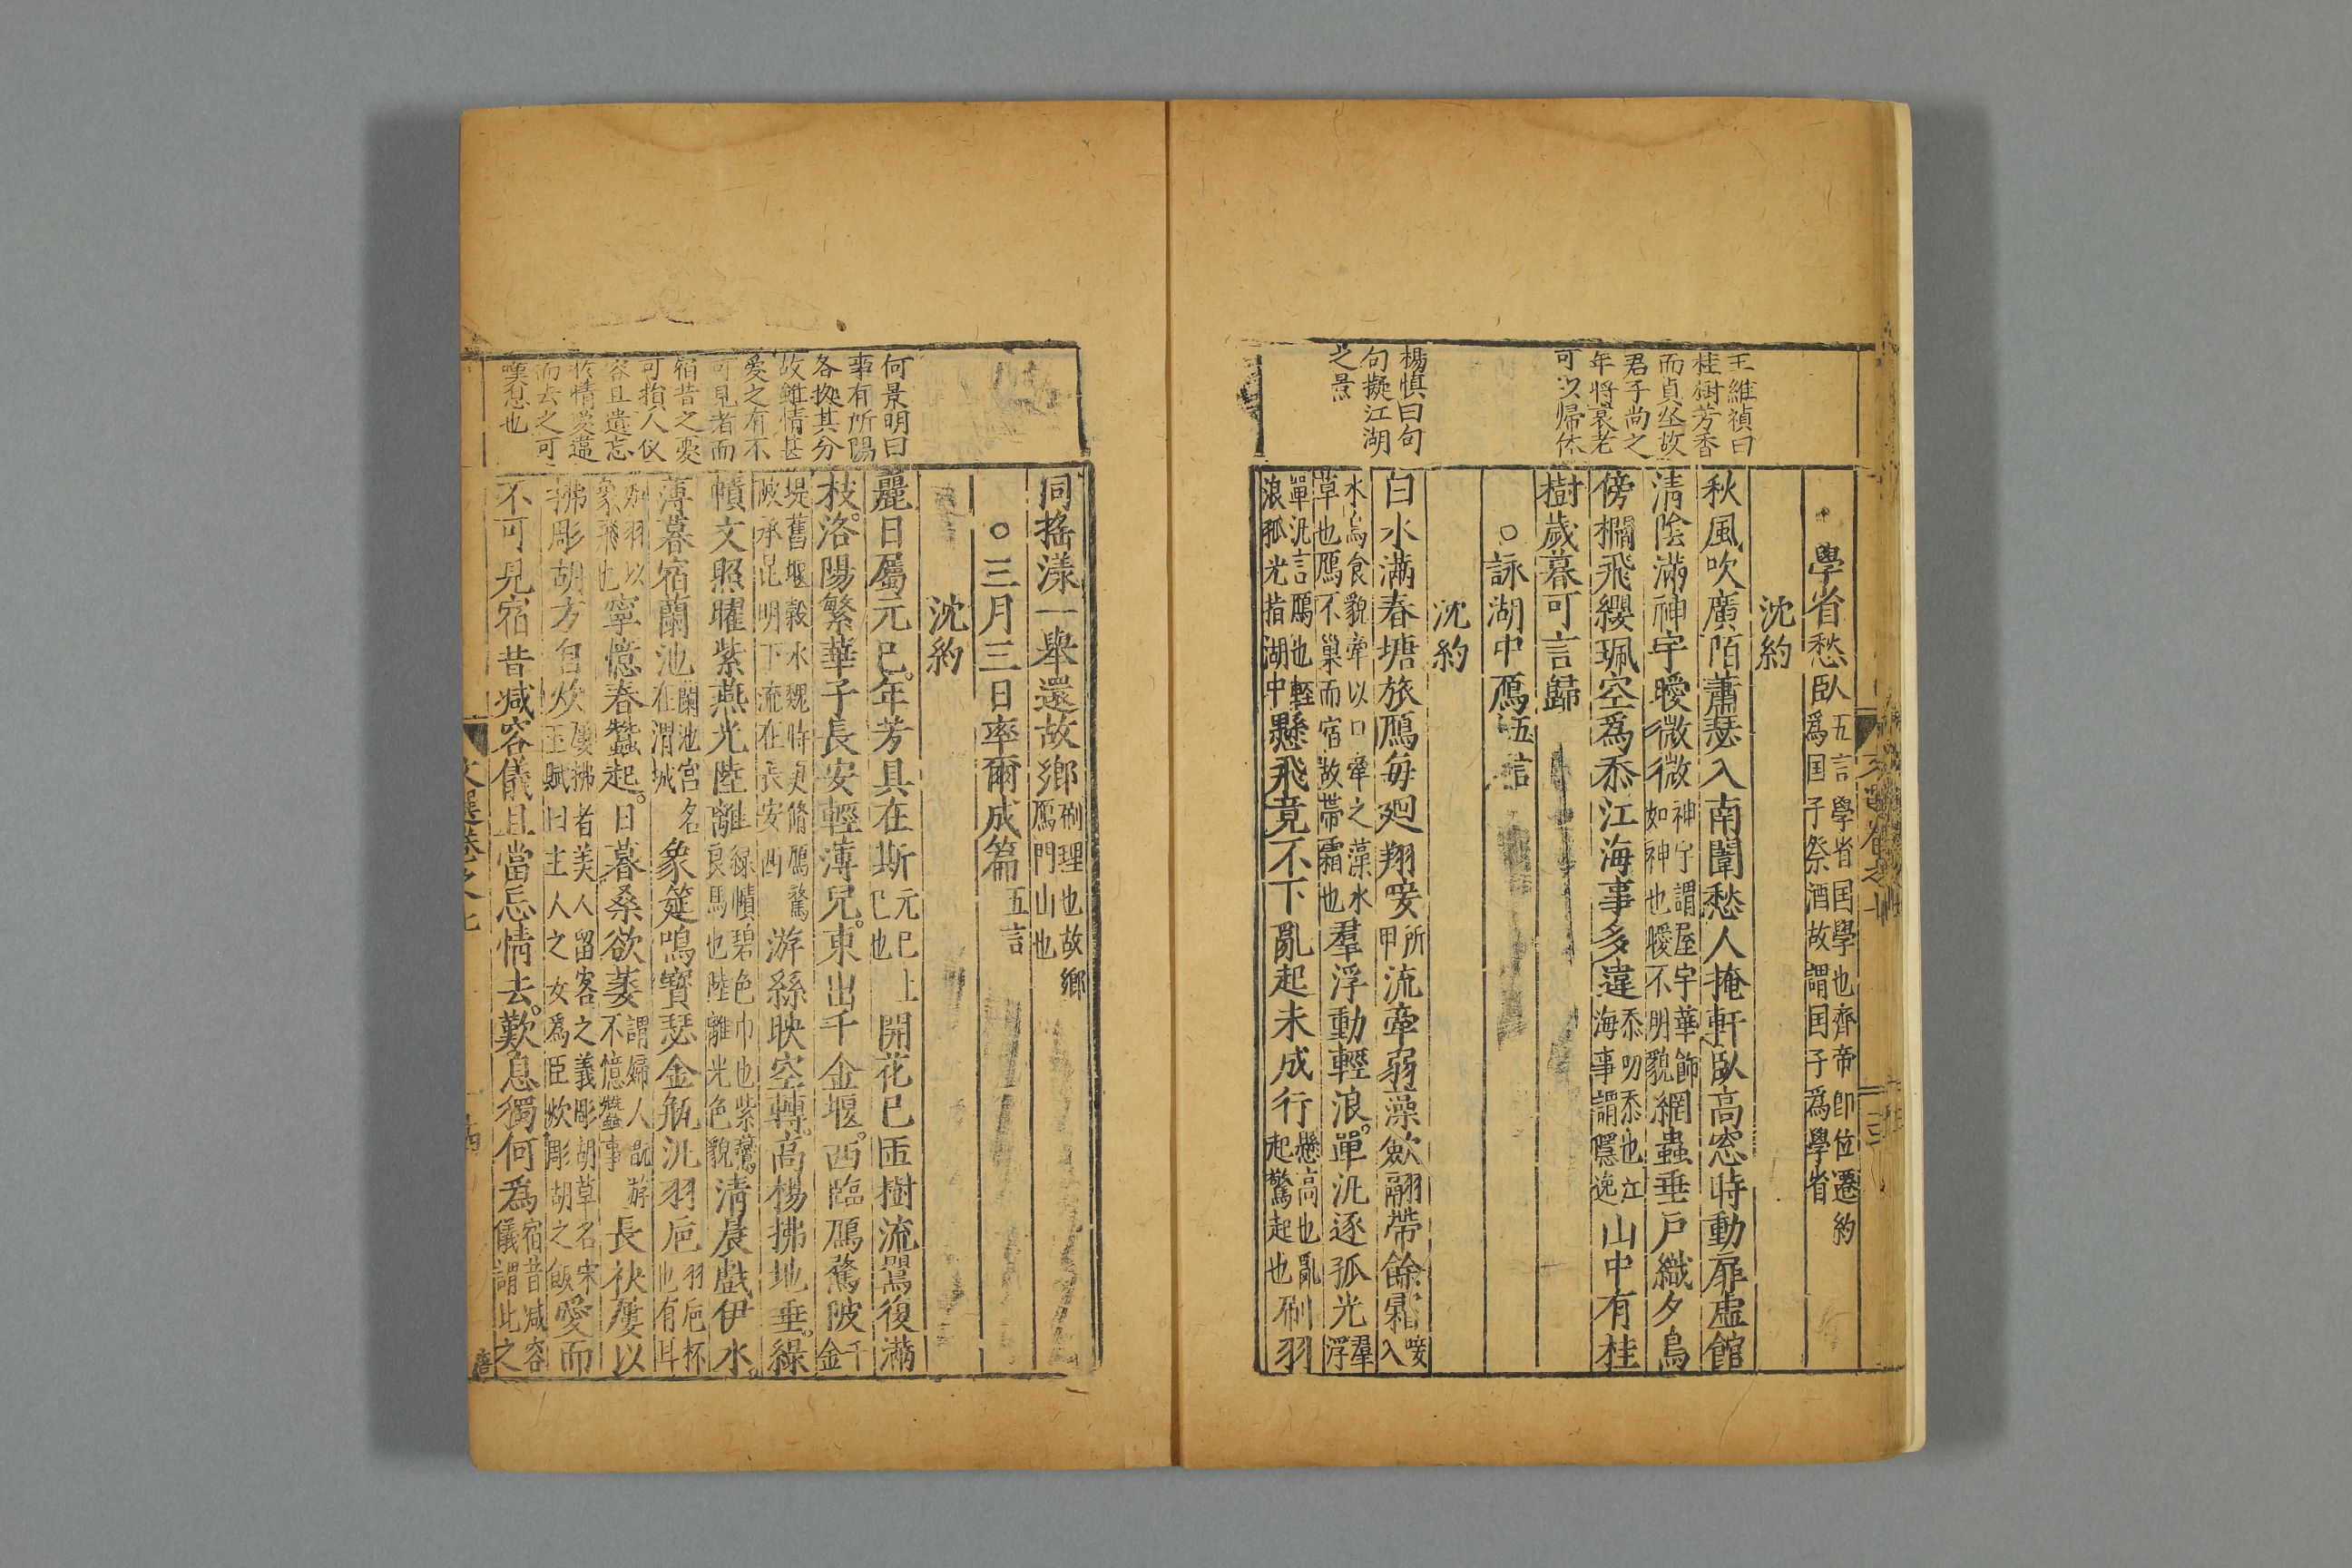 王維禎曰
桂樹芳香
而貞烝故
君子尚之
年將衰老
可以歸休
楊慎曰句
句擬江湖
之景
學省愁臥五言學省国學也齊帝即位遷約
爲国子祭酒故謂国子爲學省
沈約
秋風吹廣陌蕭瑟入南闈愁人掩軒臥高窓時動扉虛館
清陰滿神宇曖微微神宇謂屋宇華飾
如神也曖不明貌網蟲垂戸織夕鳥
傍櫩飛纓珮空爲忝江海事多違忝叨忝也江
海事謂隱逸山中有桂
樹歲暮可言歸
○詠湖中鴈五言
沈約
白水滿春塘旅鴈每廻翔唼所
甲流牽弱藻歛翮帶餘霜唼
入
水鳥食貌牽以口牽之藻水
草也鴈不巢而宿故帶霜也羣浮動輕浪。單汎逐孤光羣
浮
單汎言鴈也輕
浪孤光指湖中懸飛竟不下亂起未成行懸高也亂
起驚起也刷羽
何景明曰
事有所陽
各拠其分
故雖情甚
愛之有不
可見者而
宿昔之㤅
可指人仪
容且遺忘
於情愛遥
而去之可
嘆怨也
同搖漾一舉還故鄉刷理也故鄉
鴈門山也
○三月三日率爾成篇五言
沈約
麗日屬元巳。年芳具在斯元巳上
巳也開花已匝樹流鸎復滿
枝。洛陽繁華子長安輕薄兒。東出千金堰。西臨鴈騖陂千
金
堤舊堰穀水魏時更脩鴈騖
陂承昆明下流在長安西游絲映空轉。高楊拂地垂。綠
幘文照曜紫燕光陸離綠幘碧色巾也紫鷰
良馬也陸離光色貌清晨戲伊水。
薄暮宿蘭池蘭池宮名
在渭城象筵鳴寶瑟金瓶汎羽巵羽巵杯
也有斗
刻羽以
象飛也寧憶春蠶起。日暮桑欲萎謂婦人翫游
不憶蠶事長袂屢以
拂彫胡方自炊屢拂者美人留客之義彫胡草名宋
玉賦曰主人之女爲臣炊彫胡之飯愛而
不可見宿昔减容儀且當忘情去。歎息獨何爲宿昔减容
儀謂此之